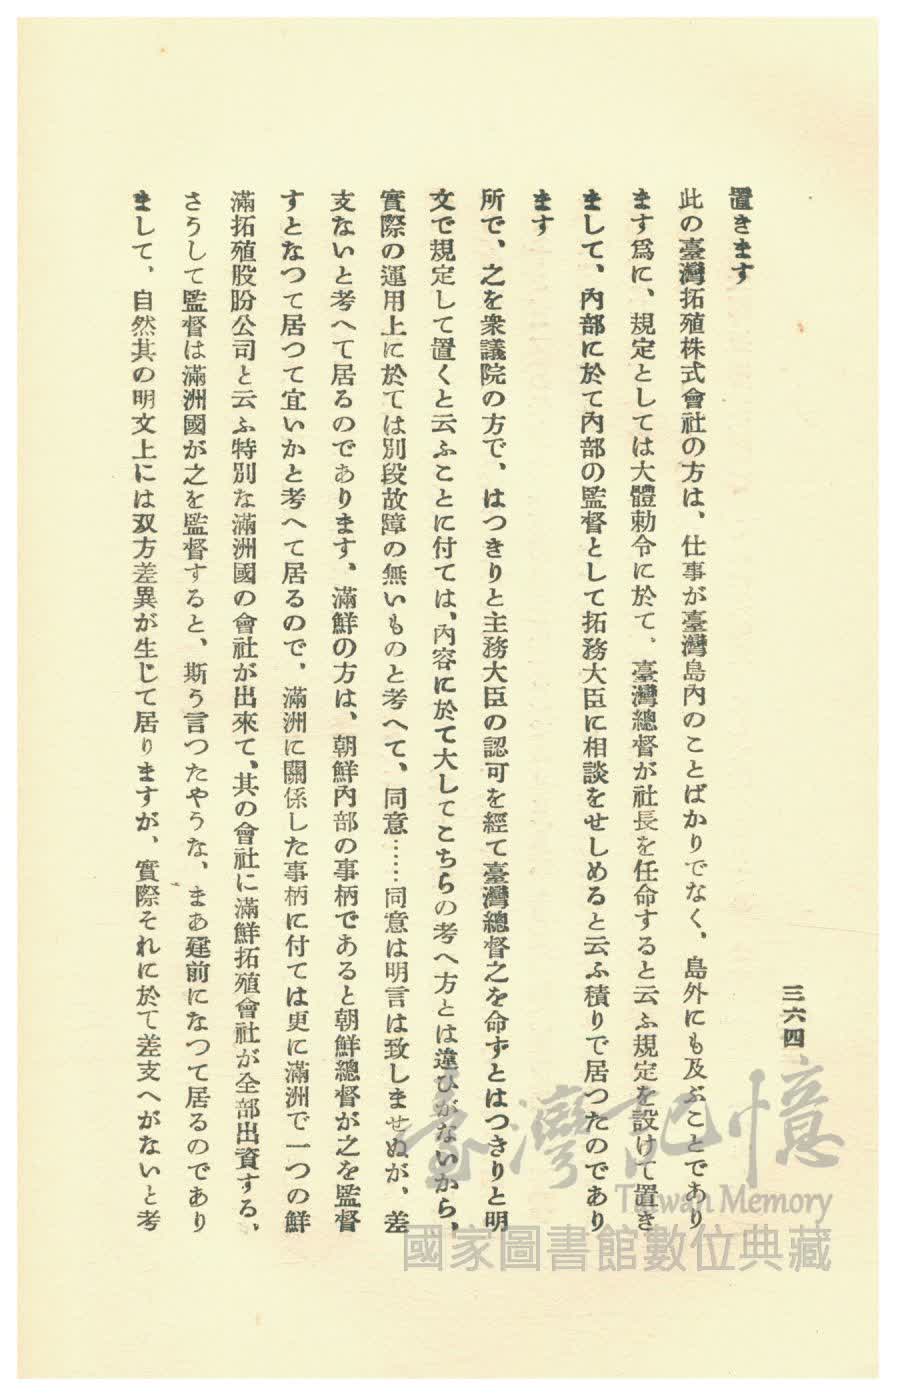 三六四
置きます
此の臺灣拓殖株式會社の方は、仕事が臺灣島內のことばかりでなく、島外にも及ぶことであり
ます爲に、規定としては大體勅令に於て、臺灣總督が社長を任命すると云ふ規定を設けて置き
まして、內部に於て內部の監督として拓務大臣に相談をせしめると云ふ積りで居つたのであり
ます
所で、之を衆議院の方で、はつきりと主務大臣の認可を經て臺灣總督之を命ずとはつきりと明
文で規定して置くと云ふことに付ては、內容に於て大してこちらの考へ方とは違ひがないから、
實際の運用上に於ては別段故障の無いものと考へて、同意……同意は明言は致しませぬが、差
支ないと考へて居るのであります、滿鮮の方は、朝鮮內部の事柄であると朝鮮總督が之を監督
すとなつて居つて宜いかと考へて居るので、滿洲に關係した事柄に付ては更に滿洲で一つの鮮
滿拓殖股份公司と云ふ特別な滿洲國の會社が出來て、其の會社に滿鮮拓殖會社が全部出資する、
さうして監督は滿洲國が之を監督すると、斯う言つたやうな、まあ建前になつて居るのであり
まして、自然其の明文上には双方差異が生じて居りますが、實際それに於て差支へがないと考
臺灣記憶
Taiwan Memory
國家圖書館數位典藏